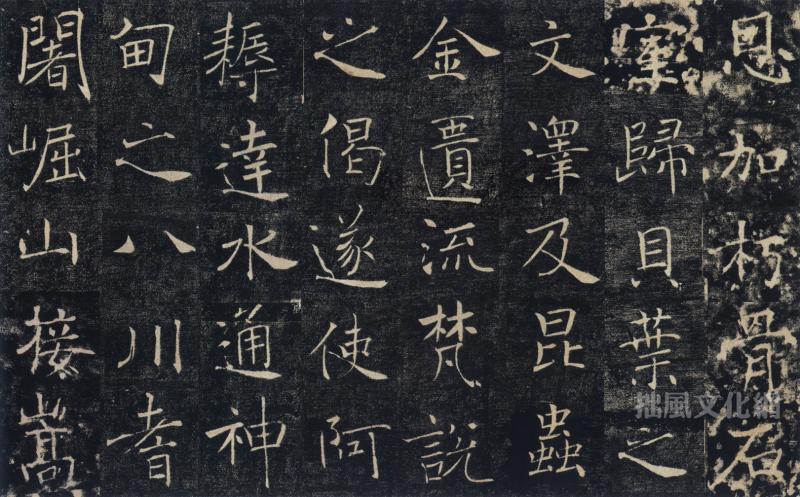 恩加朽骨石
室歸貝葉之
文澤及昆蟲
金遺流梵說
之偈遂使阿
耨達水通神
甸之八川耆
闍崛山接嵩
拙風文化網